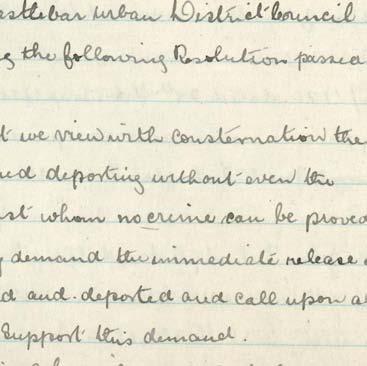 astlebar Urban District Council
g the following Resolution passed
t we view with consternation the
ed deporting without even the
st whom no crime can be proved
demand the immediate release
d and deported and call upon a
Support this demand.